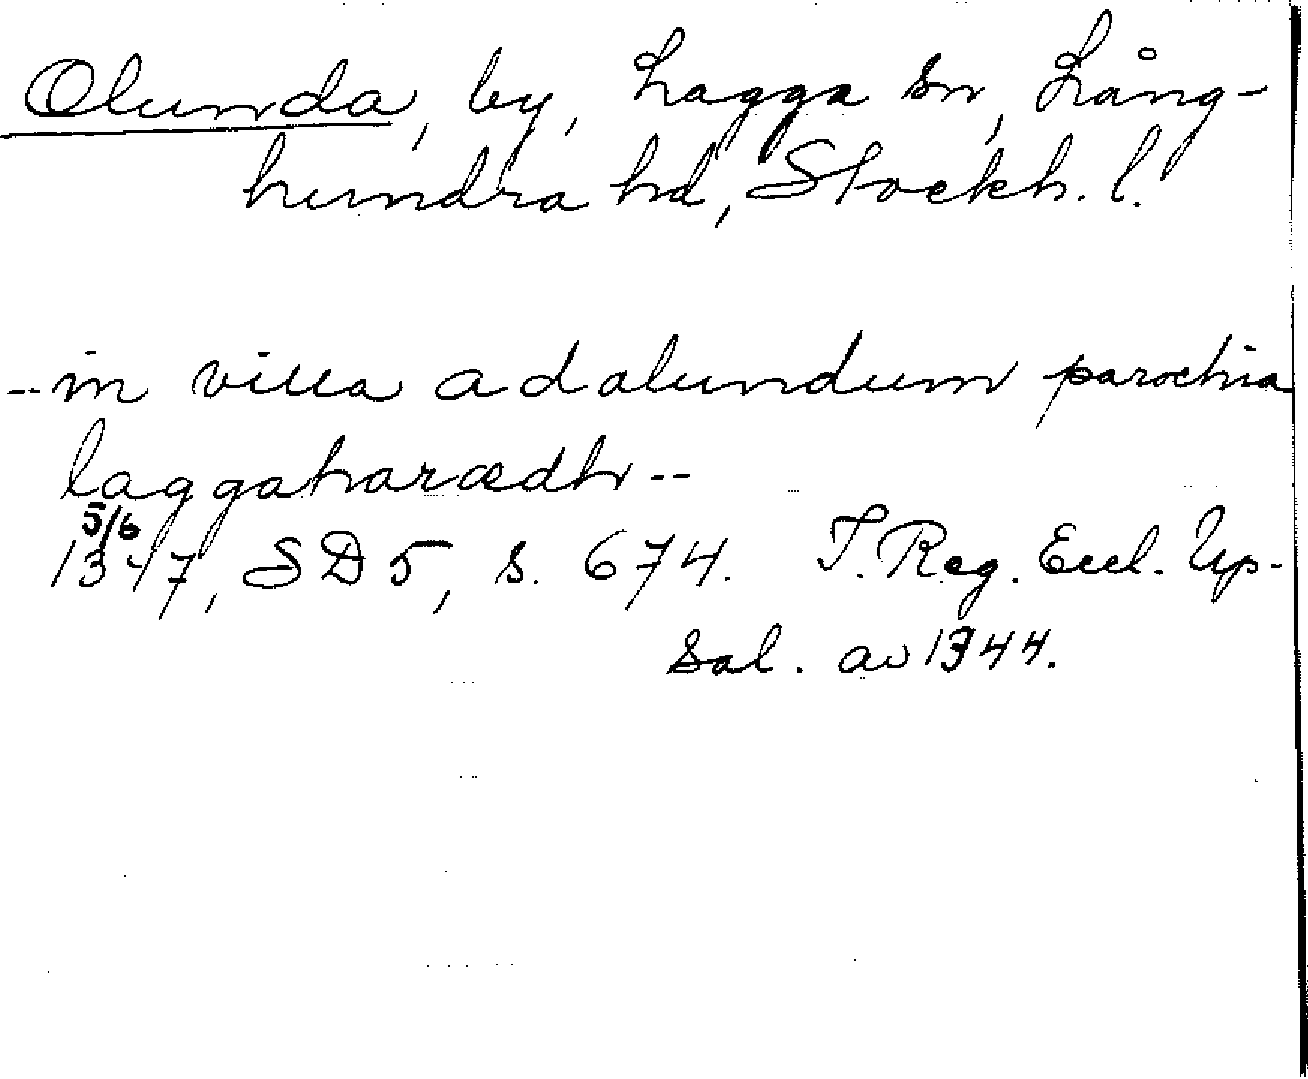 Olunda, by, Lagga sn, Lång-
hundra hd, Stockh. l.
--in villa adalundum parochia
laggahæraedh--
5/6
1347, SD 5, s. 674. T. Reg. Eccl. Up-
sal. av 1344.